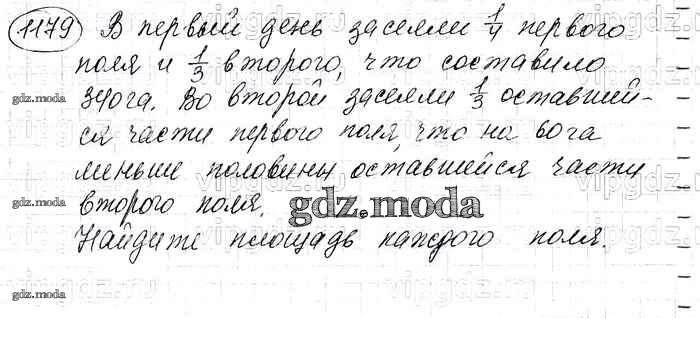 1179 В первый день засеяли 1/4 первого
поля и 1/3 второго, что составило
340га. Во второй засеяли 1/3 оставшей-
ся части первого поля, что на 60га
меньше половины оставшейся части
второго поля.
Найдите площадь каждого поля.
gdz.moda
gdz.moda
gdz.moda
gdz.moda